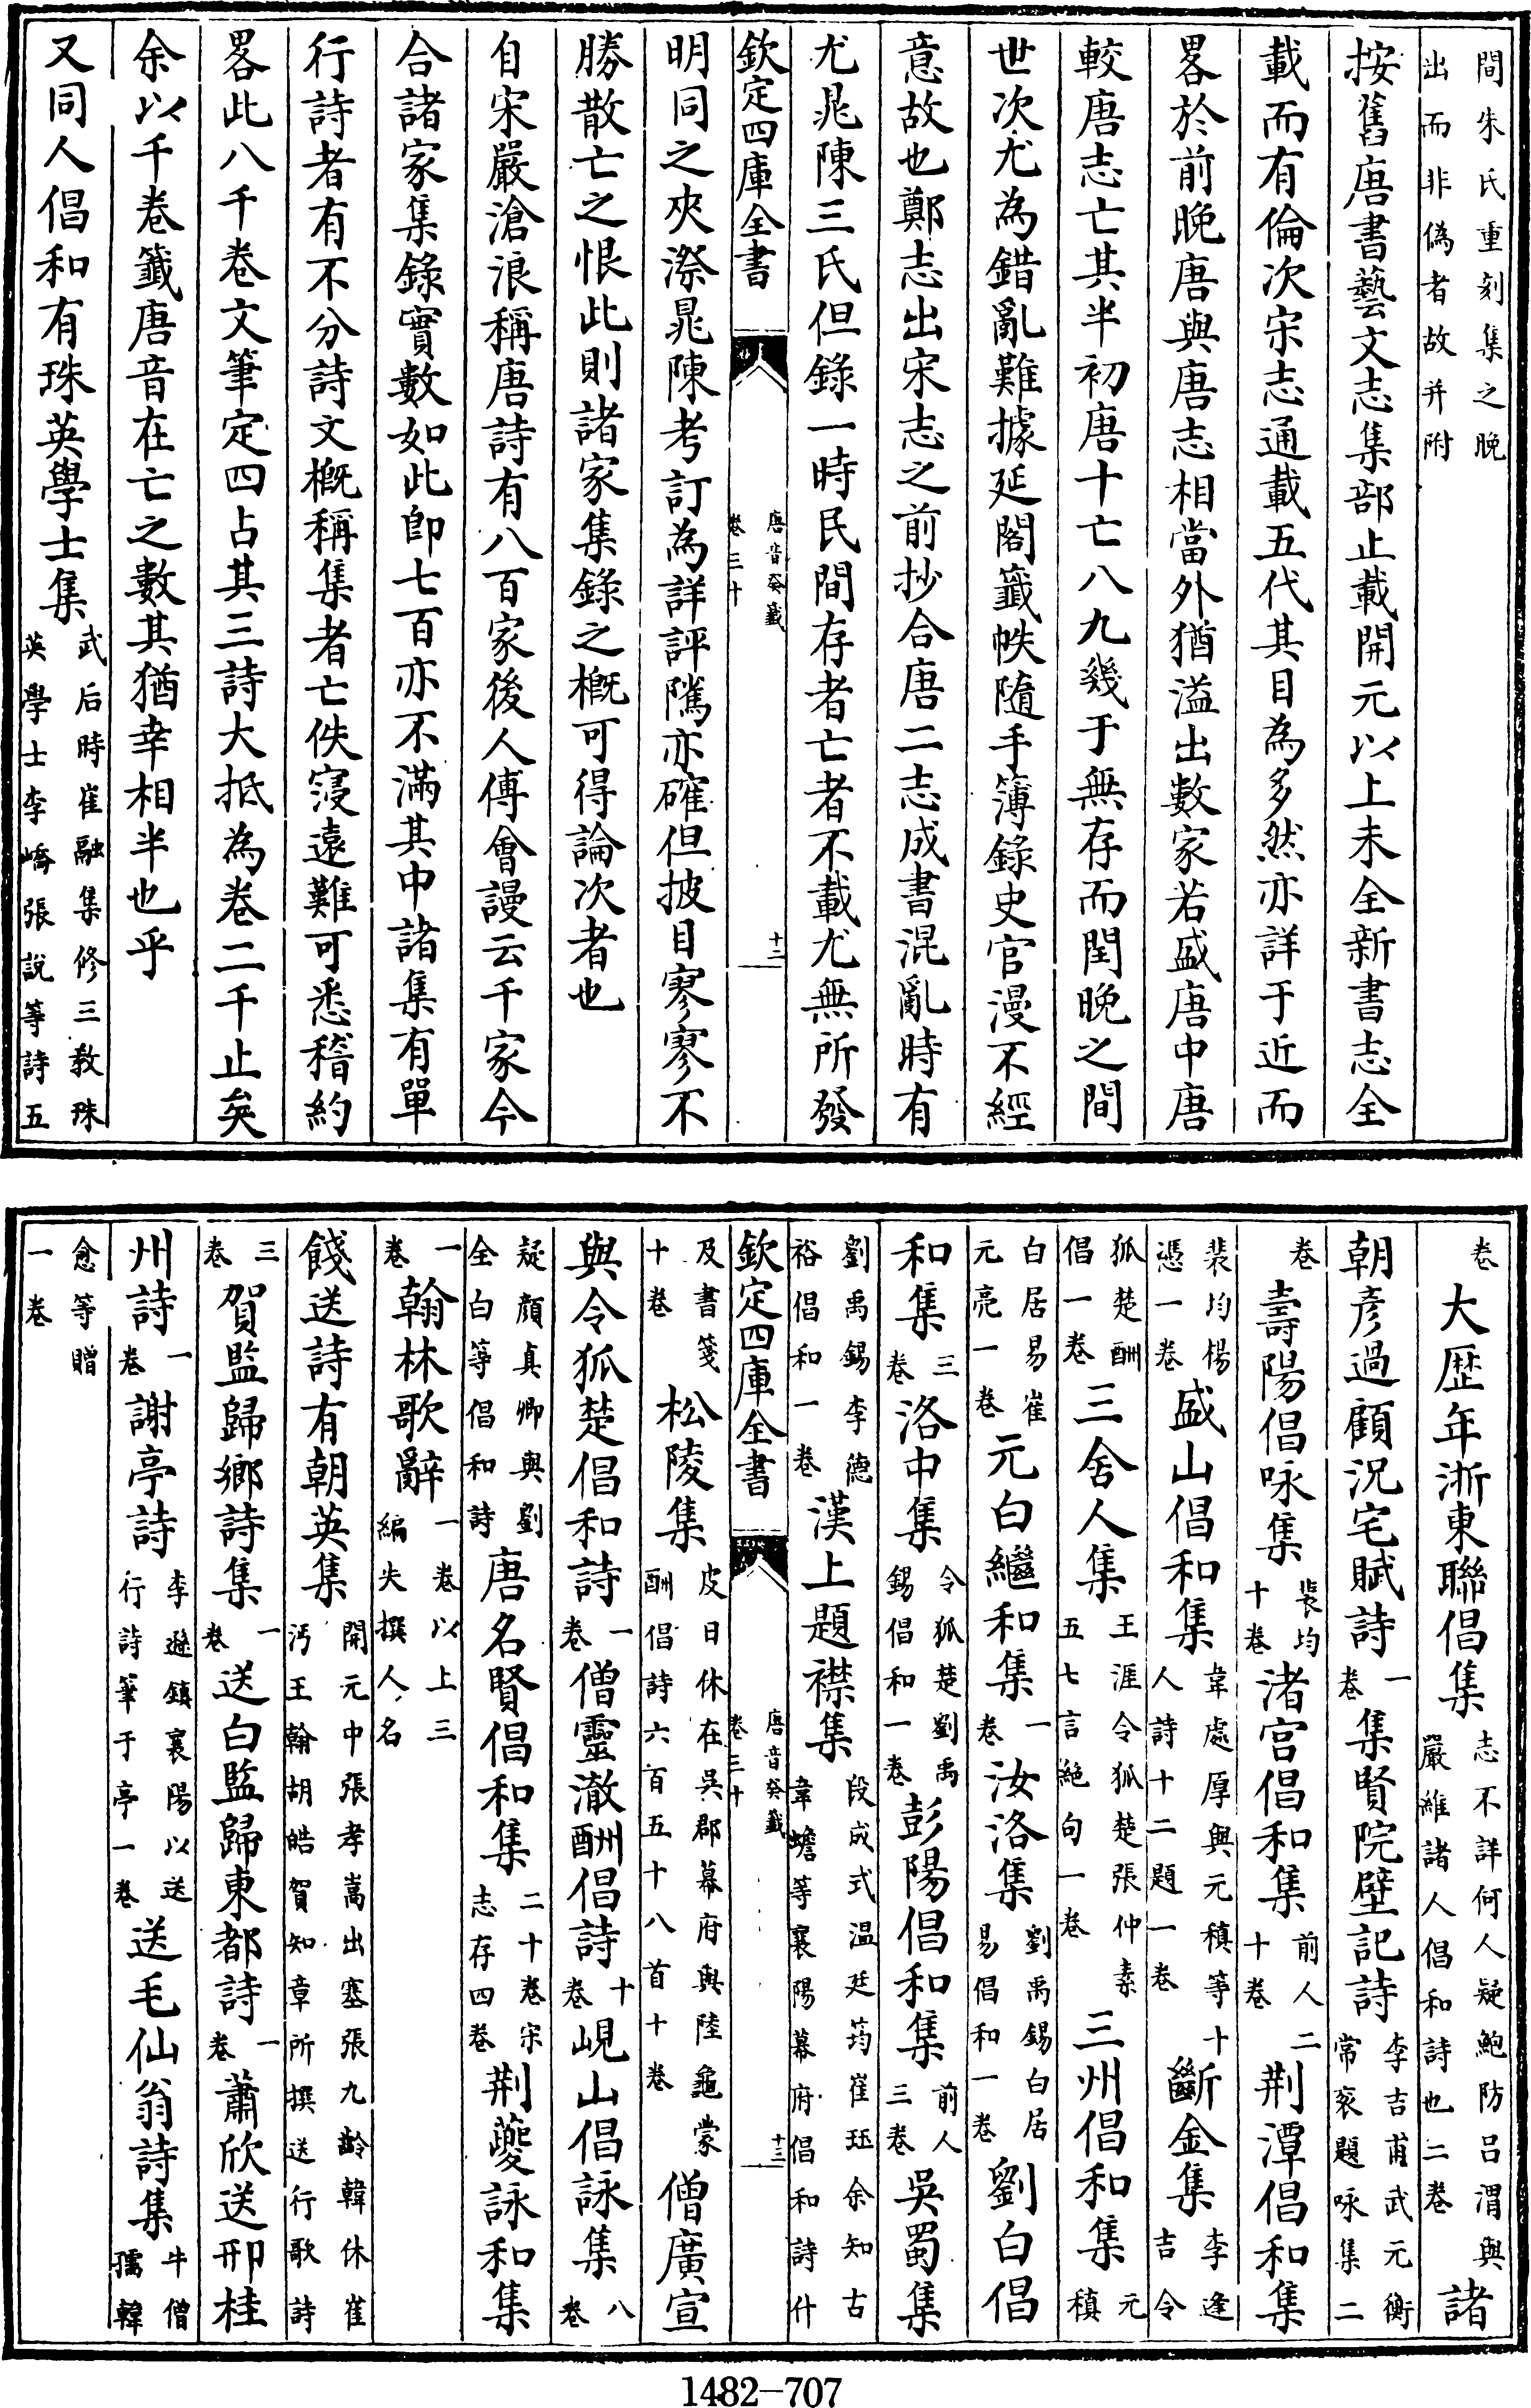 間朱氏重刻集之晚
出而非偽者故并附
按舊唐書藝文志集部止載開元以上未全新書志全
載而有倫次宋志通載五代其目為多然亦詳于近而
畧於前晚唐與唐志相當外猶溢出數家若盛唐中唐
較唐志亡其半初唐十亡八九幾于無存而閏晚之間
世次尤為錯亂難據延閣籤帙隨手簿錄史官漫不經
意故也鄭志出宋志之前抄合唐二志成書混亂時有
尤晁陳三氏但錄一時民間存者亡者不載尤無所發
欽定四庫全書
唐音癸籤
卷三十
十二
明同之夾漈晁陳考訂為詳評隲亦確但披目寥寥不
勝散亡之恨此則諸家集錄之概可得論次者也
自宋嚴滄浪稱唐詩有八百家後人傅會謾云千家今
合諸家集錄實數如此卽七百亦不滿其中諸集有單
行詩者有不分詩文概稱集者亡佚寖遠難可悉稽約
畧此八千卷文筆定四占其三詩大抵為卷二千止矣
余以千卷籤唐音在亡之數其猶幸相半也乎
又同人倡和有珠英學士集
武后時崔融集修三教珠
英學士李嶠張說等詩五
卷
大歴年浙東聯倡集
志不詳何人疑鮑防吕渭與
嚴維諸人倡和詩也二卷
諸
朝彦過顧況宅賦詩
一
卷
集賢院壁記詩
李吉甫武元衡
常衮題咏集二
卷
壽陽倡咏集
裴均
十卷
渚宮倡和集
前人二
十卷
荆潭倡和集
裴均楊
憑一卷
盛山倡和集
韋處厚與元稹等十
人詩十二題一卷
斷金集
李逢
吉令
狐楚酬
倡一卷
三舍人集
王涯令狐楚張仲素
五七言絶句一卷
三州倡和集
元
稹
白居易崔
元亮一卷
元白繼和集
一
卷
汝洛集
劉禹錫白居
易倡和一卷
劉白倡
和集
三
卷
洛中集
令狐楚劉禹
錫倡和一卷
彭陽倡和集
前人
三卷
吳蜀集
劉禹錫李德
裕倡和一卷
漢上題襟集
段成式温廷筠崔珏余知古
韋蟾等襄陽幕府倡和詩什
欽定四庫全書
唐音癸籤
卷三十
十三
及書箋
十卷
松陵集
皮日休在吳郡幕府與陸龜蒙
酬倡詩六百五十八首十卷
僧廣宣
與令狐楚倡和詩
一
卷
僧靈澈酬倡詩
十
卷
峴山倡詠集
八
卷
疑顔真卿與劉
全白等倡和詩
唐名賢倡和集
二十卷宋
志存四卷
荆夔詠和集
一
卷
翰林歌辭
一卷以上三
編失撰人名
餞送詩有朝英集
開元中張孝嵩出塞張九齡韓休崔
沔王翰胡皓賀知章所撰送行歌詩
三
卷
賀監歸鄉詩集
一
卷
送白監歸東都詩
一
卷
蕭欣送邢桂
州詩
一
卷
謝亭詩
李遜鎮襄陽以送
行詩筆于亭一卷
送毛仙翁詩集
牛僧
孺韓
愈等贈
一卷
1482—707